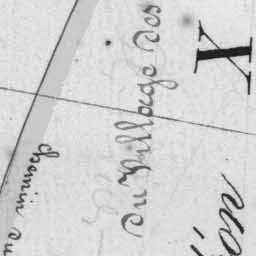 du Village des
chemin du
X